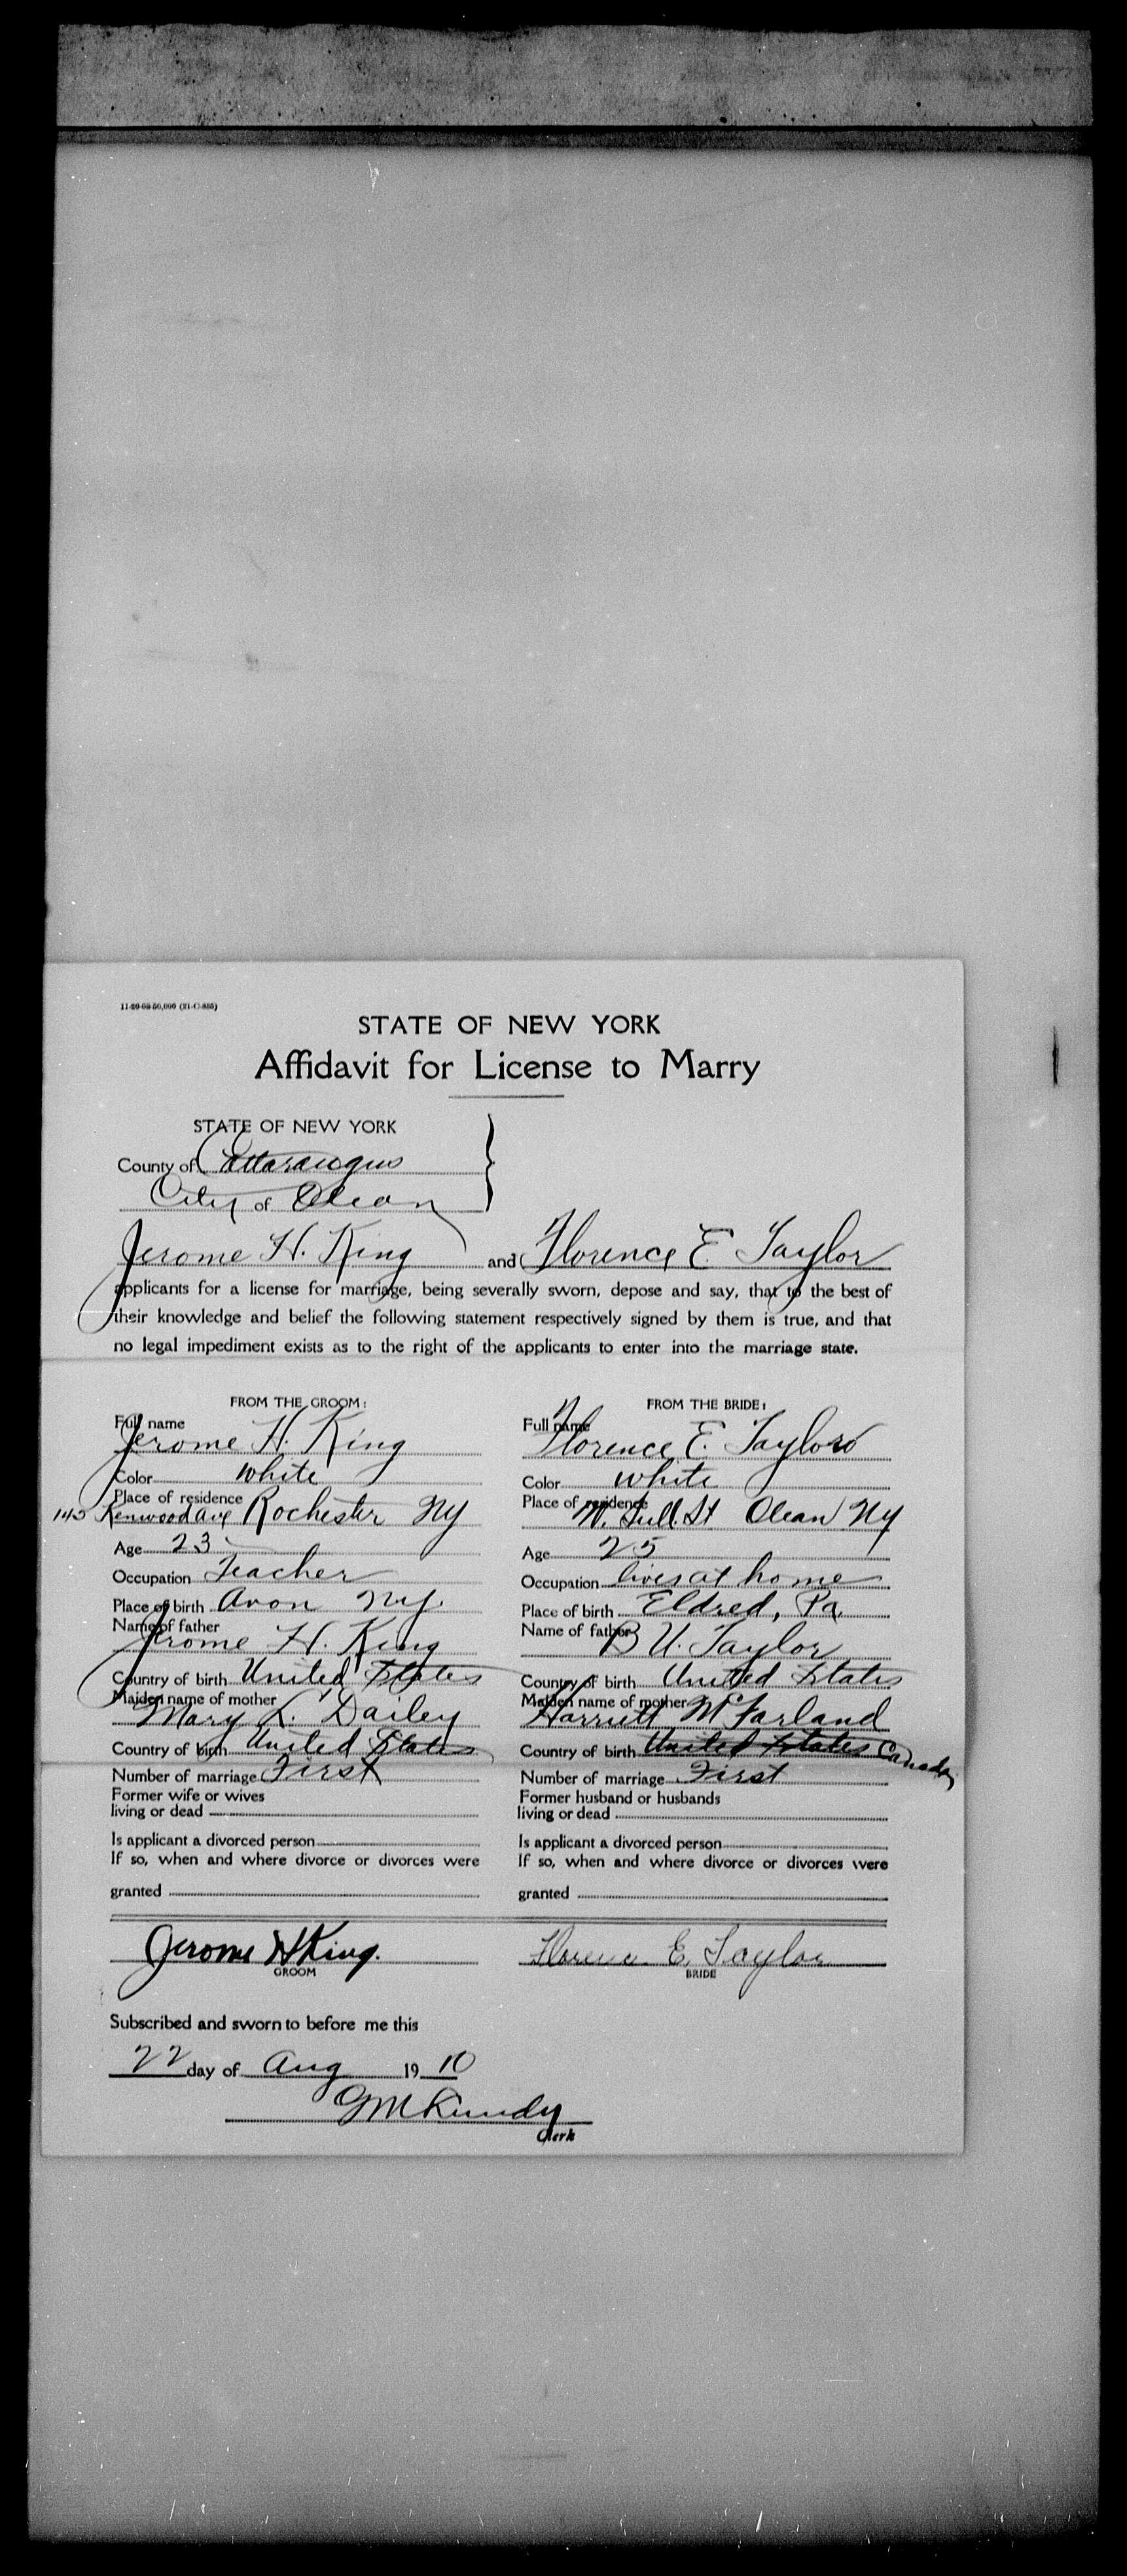 STATE OF NEW YORK
Affidavit for License to Marry
STATE OF NEW YORK
County of Cattaraugus
City of Olean
Jerome H. King and Florence E. Taylor
applicants for a license for marriage, being severally sworn, depose and say, that to the best of
their knowledge and belief the following statement respectively signed by them is true, and that
no legal impediment exists as to the right of the applicants to enter into the marriage state.
FROM THE GROOM:
Full name
Jerome H. King
Color white
Place of residence
145 Kenwood Ave Rochester NY
Age 23
Occupation Teacher
Place of birth Avon NY.
Name of father
Jerome H. King
Country of birth United States
Maiden name of mother
Mary L. Dailey
Country of birth United States
Number of marriage First
Former wife or wives
living or dead
Is applicant a divorced person
If so, when and where divorce or divorces were
granted
FROM THE BRIDE:
Full name
Florence E. Taylor
Color white
Place of residence
St Olean NY
Age 25
Occupation lives at home
Place of birth Eldred, Pa.
Name of father
B U. Taylor
Country of birth United States
Maiden name of mother
Harriett McFarland
Country of birth United States Canada
Number of marriage First
Former husband or husbands
living or dead
Is applicant a divorced person
If so, when and where divorce or divorces were
granted
Jerome H King.
GROOM
Florence E. Taylor
BRIDE
Subscribed and sworn to before me this
22 day of Aug 1910
Clerk